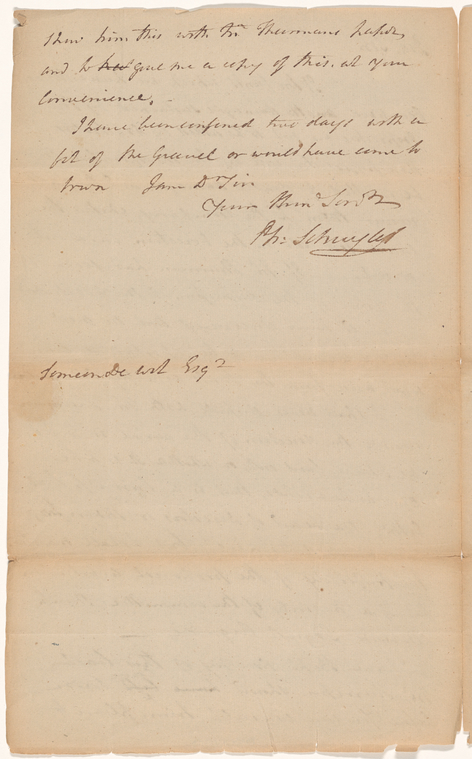 Shew him this with Mr Thurmans papers
and to give me a copy of this. at your
Convenience. -
I have been confined two days with a
fit of the Gravel or would have come to
town I am Dr Sir
Your Hum: Servt
Ph: Schuyler
Simeon De Wit Esqr